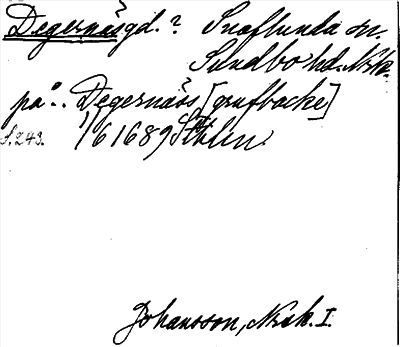 Degernäsgd.? Snaflunda sn.
Sundbo hd. Nrk.
på.. Degernääs [grufbacke]
S. 243. 1/6 1689 Sthlm.
Johansson, Nrk. I.